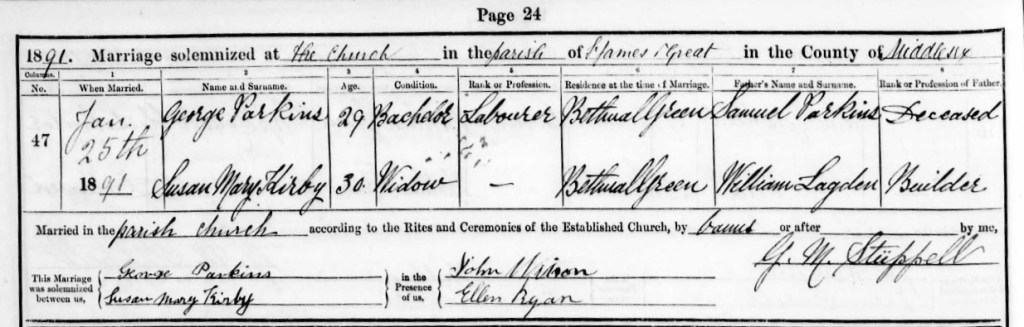 Page 24
1891. Marriage solemnized at the Church in the parish of St James Great in the County of Middlesex
Columns. 1 2 3 4 5 6 7 8
No. When Married. Name and Surname. Age. Condition. Rank or Profession. Residence at the time of Marriage. Father's Name and Surname. Rank or Profession of Father.
47 Jan. 25th George Parkins 29 Bachelor Labourer Bethnal Green Samuel Parkins Deceased
1891 Susan Mary Kirby 30 Widow – Bethnal Green William Lagden Builder
Married in the parish church according to the Rites and Ceremonies of the Established Church, by banns or after by me,
G. M.
This Marriage was solemnized between us, George Parkins in the Presence of us, John
Susan Mary Kirby Ellen Ryan